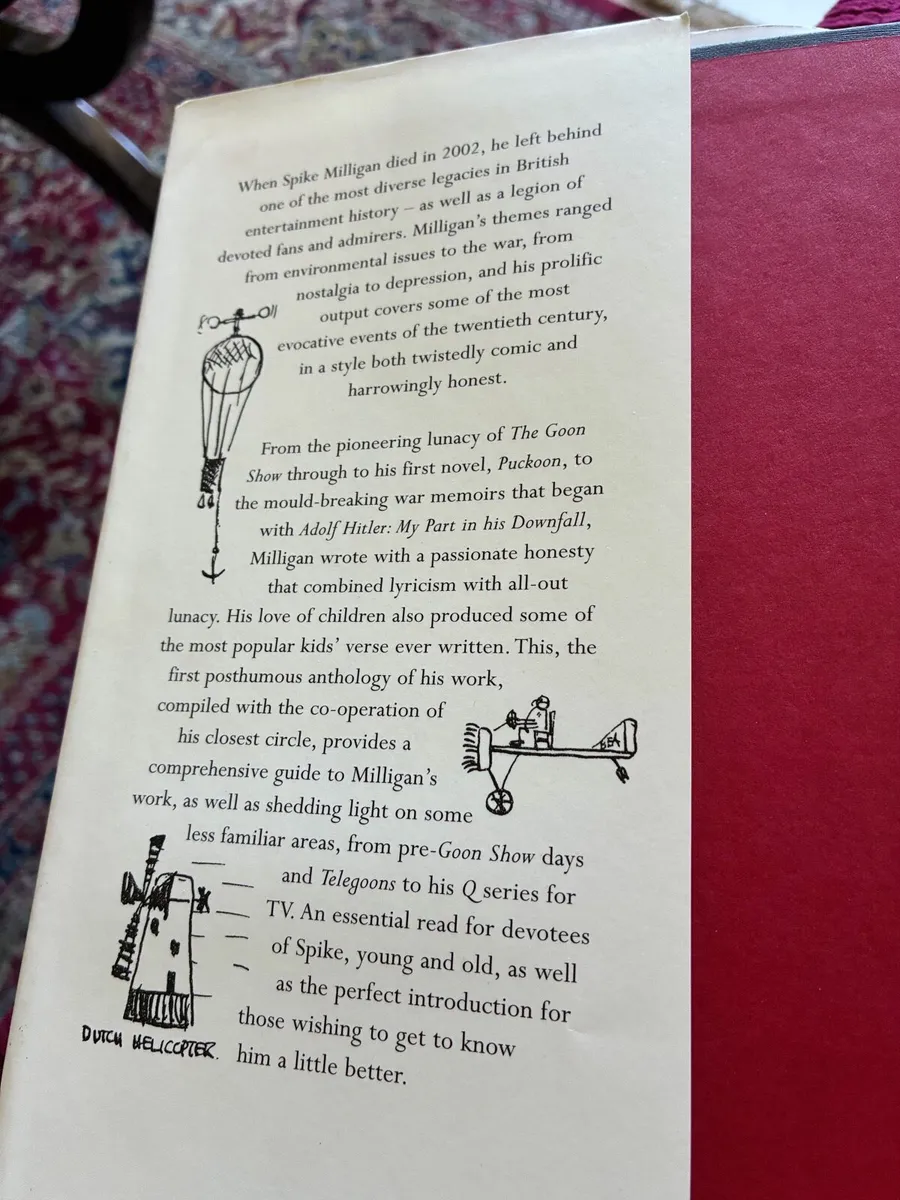 When Spike Milligan died in 2002, he left behind
one of the most diverse legacies in British
entertainment history – as well as a legion of
devoted fans and admirers. Milligan's themes ranged
from environmental issues to the war, from
nostalgia to depression, and his prolific
output covers some of the most
evocative events of the twentieth century,
in a style both twistedly comic and
harrowingly honest.
From the pioneering lunacy of The Goon
Show through to his first novel, Puckoon, to
the mould-breaking war memoirs that began
with Adolf Hitler: My Part in his Downfall,
Milligan wrote with a passionate honesty
that combined lyricism with all-out
lunacy. His love of children also produced some of
the most popular kids' verse ever written. This, the
first posthumous anthology of his work,
compiled with the co-operation of
his closest circle, provides a
comprehensive guide to Milligan's
work, as well as shedding light on some
less familiar areas, from pre-Goon Show days
and Telegoons to his Q series for
TV. An essential read for devotees
of Spike, young and old, as well
as the perfect introduction for
those wishing to get to know
him a little better.
BEA
DUTCH HELICOPTER.